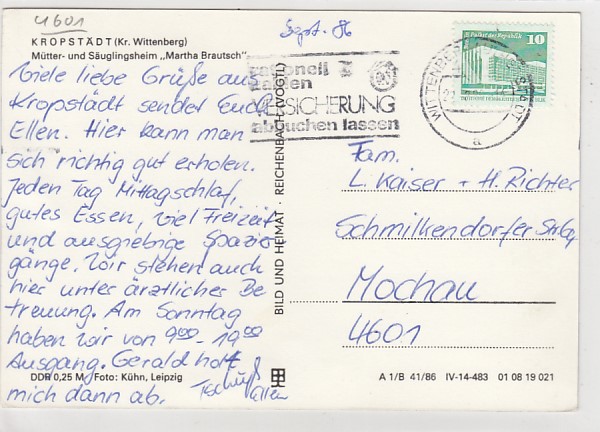 4601
Sept. 86
KROPSTÄDT (Kr. Wittenberg)
Mütter- und Säuglingsheim „Martha Brautsch"
Viele liebe Grüße aus
Kropstädt sendet Euch
Ellen. Hier kann man
sich richtig gut erholen.
Jeden Tag Mittagschlaf,
gutes Essen, viel Freizeit
und ausgiebige Spazier
gänge. Wir stehen auch
hier unter ärztlicher Be
treuung. Am Sonntag
haben wir von 9⁰⁰ - 19⁰⁰
Ausgang. Gerald holt
mich dann ab.
Tschüß
Ellen
DDR 0,25 M Foto: Kühn, Leipzig
BILD UND HEIMAT · REICHENBACH (VOGTL)
rationell
VERSICHERUNG
abbuchen lassen
10
Palast der Republik
a
Fam.
L. Kaiser + H. Richter
Schmilkendorfer
Mochau
4601
A 1/B 41/86 IV-14-483 01 08 19 021